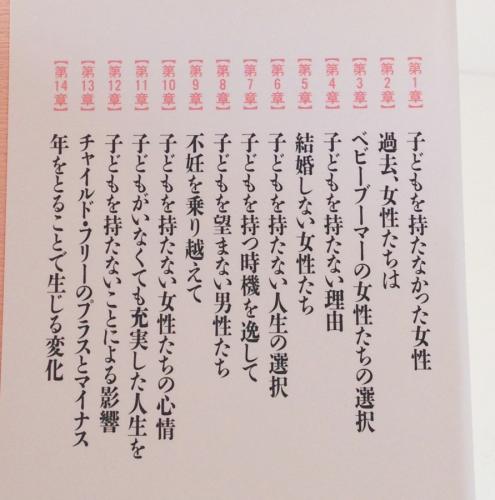 【第1章】子どもを持たなかった女性
【第2章】過去、女性たちは
【第3章】ベビーブーマーの女性たちの選択
【第4章】子どもを持たない理由
【第5章】結婚しない女性たち
【第6章】子どもを持たない人生の選択
【第7章】子どもを持つ時機を逸して
【第8章】子どもを望まない男性たち
【第9章】不妊を乗り越えて
【第10章】子どもを持たない女性たちの心情
【第11章】子どもがいなくても充実した人生を
【第12章】子どもを持たないことによる影響
【第13章】チャイルド・フリーのプラスとマイナス
【第14章】年をとることで生じる変化